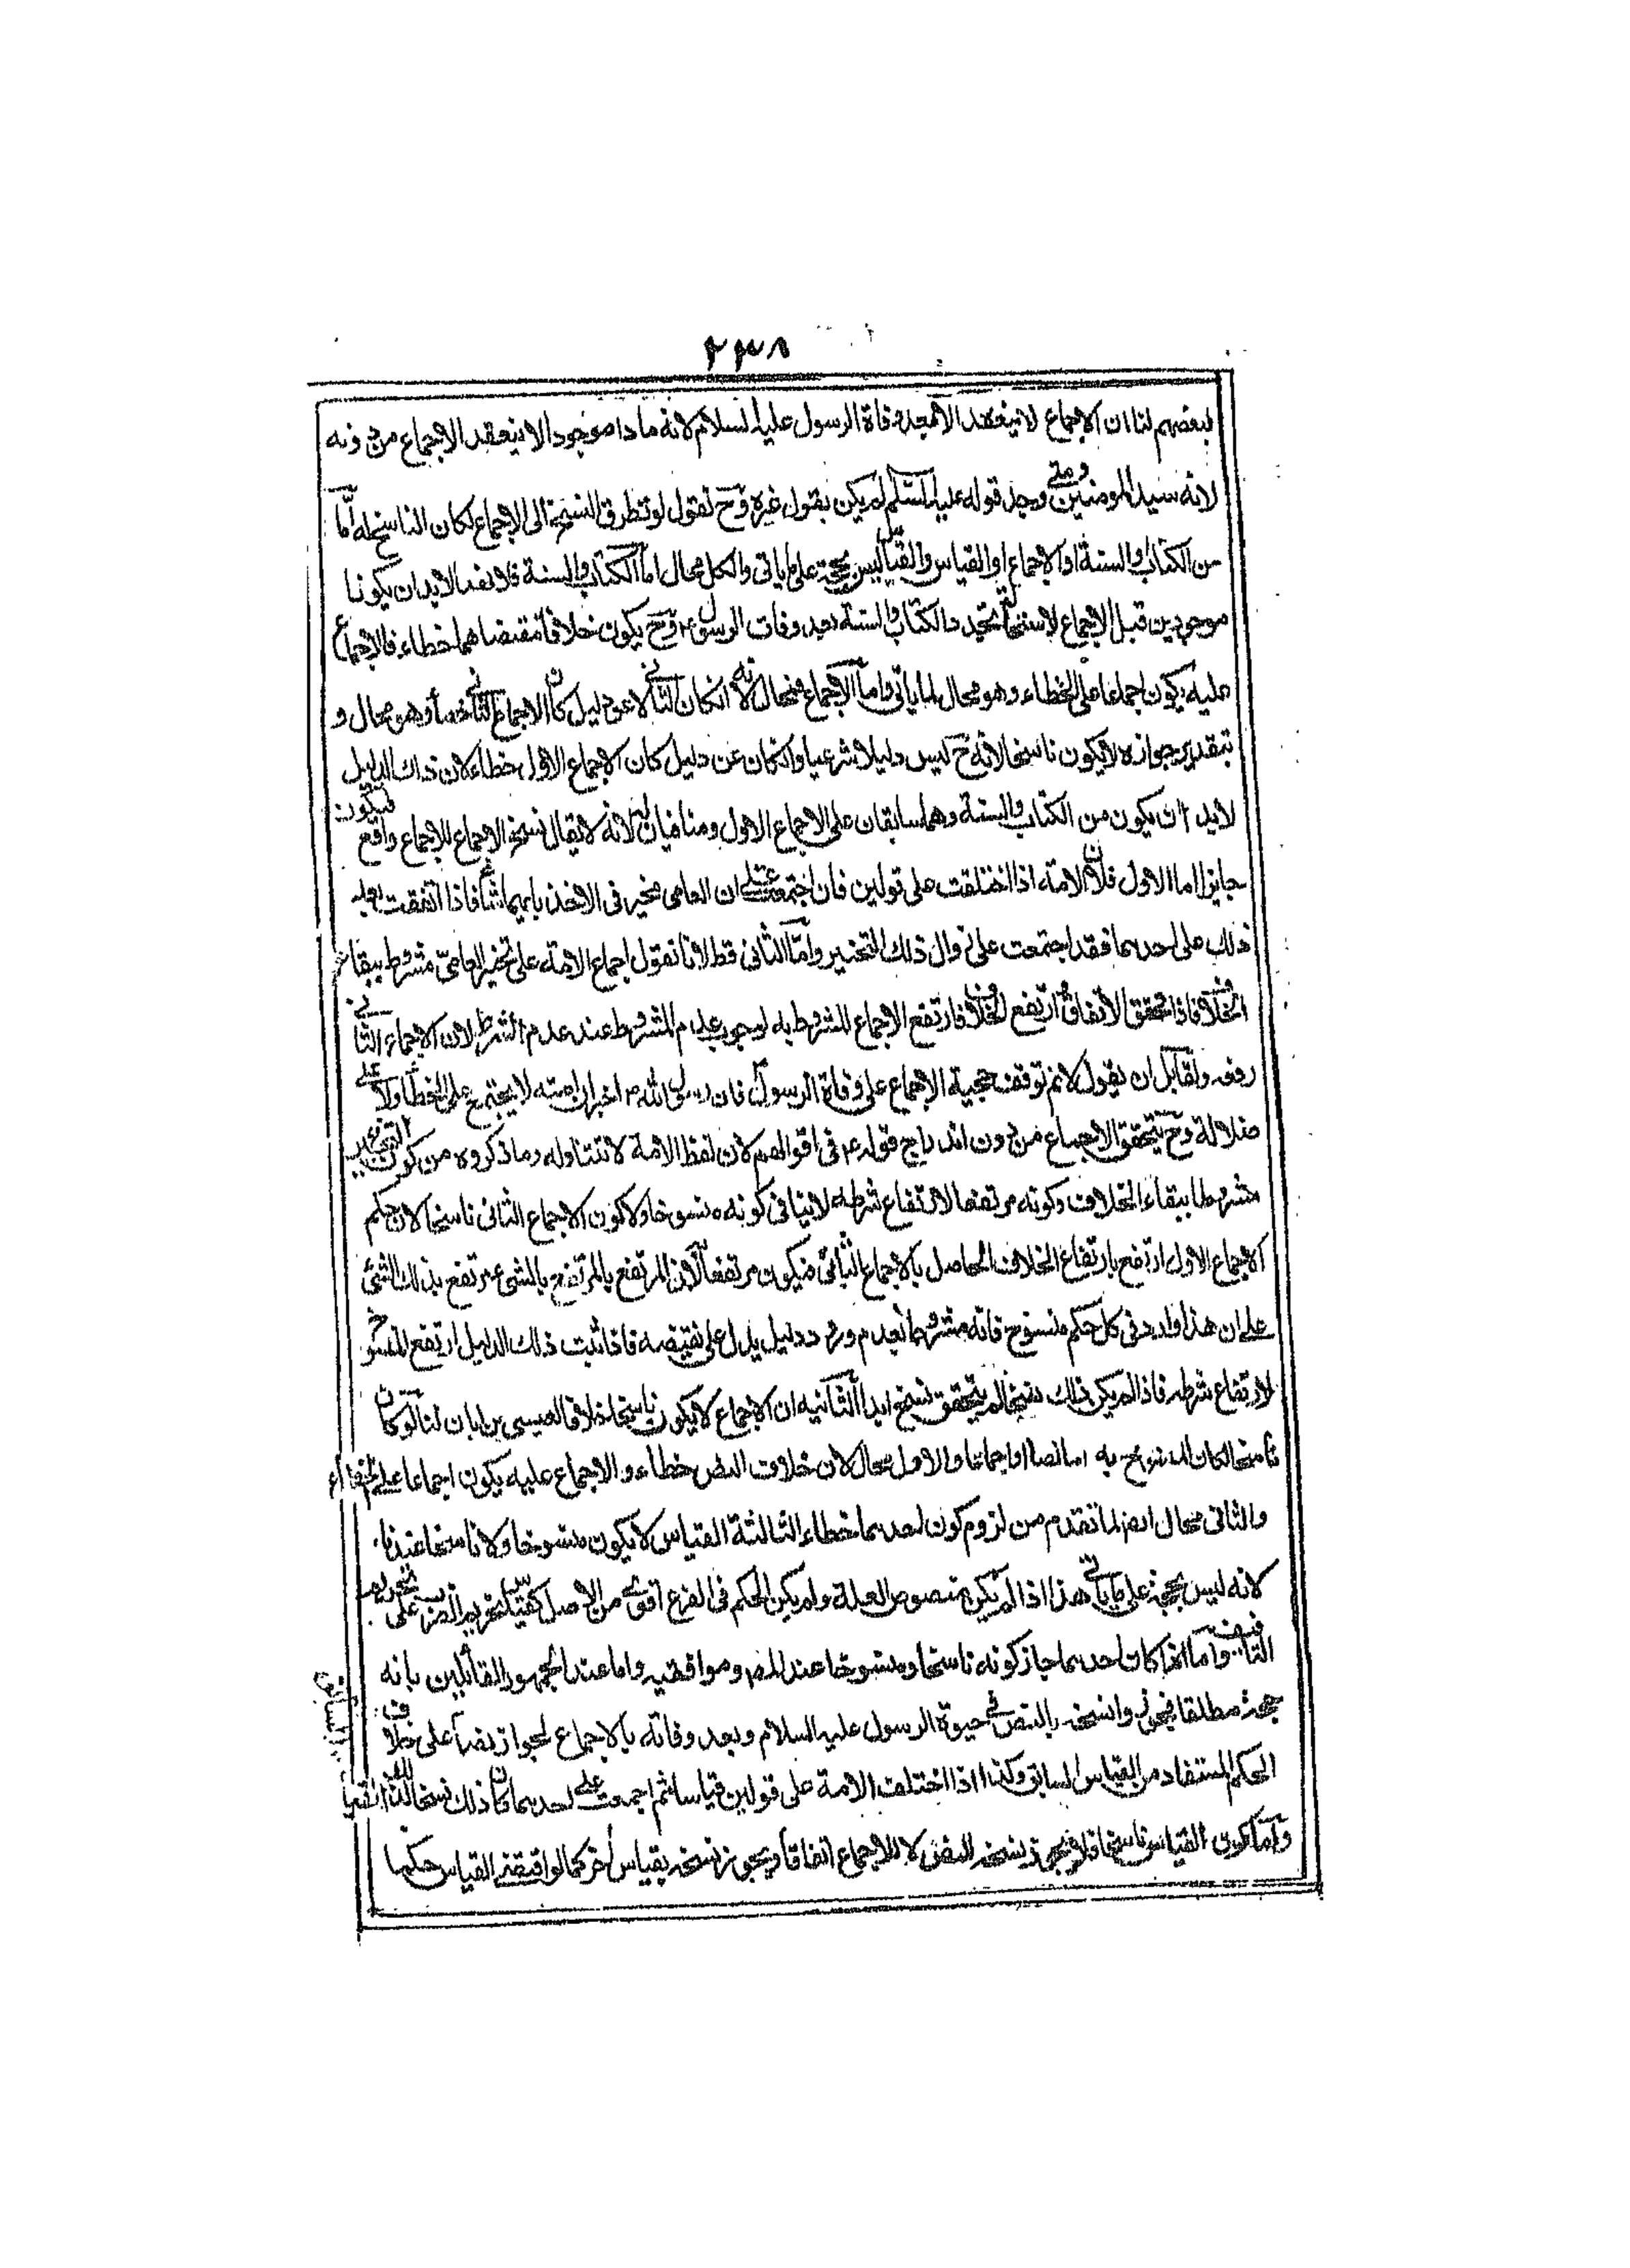 ٢٣٨
لبعضهم لنا ان الاجماع لا ينعقد الا بعد وفاة الرسول عليه السلام لانه ما دام موجودا لا ينعقد الاجماع من دونه
لانه سيد المومنين ومتى وجد قوله عليه السلم لم يكن بقول غيره وح نقول لو تطرق النسخ الى الاجماع لكان الناسخ له امّا
من الكتاب والسنة او الاجماع او القياس والقياس ليس بحجة على ما ياتى والكل محال اما الكتاب والسنة فلانهما لابد ان يكونا
موجودين قبل الاجماع لاستحالة تجدد الكتاب والسنة بعد وفات الرسول ٢ وح يكون خلاف مقتضاهما خطاء فالاجماع
عليه يكون اجماعا على الخطاء وهو محال لما ياتى واما الاجماع فمحال لانه انكان الثانى لا عن دليل كان الاجماع الثانى خطأ وهو محال و
بتقدير جوازه لا يكون ناسخا لانه ح ليس دليلا شرعيا وانكان عن دليل كان الاجماع الاول خطاء لان ذلك الدليل
لابد ان يكون من الكتاب والسنة وهما سابقان على الاجماع الاول ومنافيان له لانه لا يقال نسخ الاجماع للاجماع واقع فيكون
جايزا اما الاول فلان الامة اذا اختلفت على قولين فان اجتمعت على ان العامى مخير فى الاخذ بايهما شاء فاذا اتفقت بعد
ذلك على احدهما فقد اجتمعت على زوال ذلك التخيير وامّا الثانى فظ لانا نقول اجماع الامة على تخير العامىّ مشروط ببقاء
الخلاف فاذا تحقق الاتفاق ارتفع الخلاف فارتفع الاجماع المشروط به لوجوب عدم المشروط عند عدم الشرط لان الاجماع الثانى
رفعه ولقايل ان يقول لا نم توقف حجية الاجماع على وفاة الرسول فان رسول الله ٢ اخبر ان امته لا يجتمع على الخطأ ولا على
ضلالة وح يتحقق الاجماع من دون اندراج قوله ٢ فى اقوالهم لان لفظ الامة لا تتناوله وما ذكروه من كون التخيير
مشروطا ببقاء الخلاف وكونه مرتفعا لارتفاع شرطه لا ينافى كونه منسوخا ولا كون الاجماع الثانى ناسخا لان حكم
الاجماع الاول ارتفع بارتفاع الخلاف الحاصل بالاجماع الثانى فيكون مرتفعا لان المرتفع بالمرتفع بالشىء مرتفع بذلك الشئ
على ان هذا وارد فى كل حكم منسوخ فانه مشروط بعدم ورود دليل يدل على نقيضه فاذا ثبت ذلك الدليل ارتفع المنسوخ
لارتفاع شرطه فاذا لم يكن ذلك نسخا لم يتحقق نسخ ابدا الثانيه ان الاجماع لا يكون ناسخا خلافا لعيسى بن ابان لنا لو كان
ناسخا لكان المنسوخ به اما نصا او اجماعا والاول محال لان خلاف النص خطاء والاجماع عليه يكون اجماعا على الخطاء
والثانى محال ايضا لما تقدم من لزوم كون احدهما خطاء الثالثة القياس لا يكون منسوخا ولا ناسخا عندنا
لانه ليس بحجة على ما ياتى هذا اذا لم يكن منصوص العلة ولم يكن الحكم فى الفرع اقوى من الاصل كقياس تحريم الضرب على تحريم
التافيف واما اذا كان احدهما جاز كونه ناسخا ومنسوخا عند المص وموافقيه واما عند الجمهور القائلين بانه
حجة مطلقا فيجوز وا نسخه بالنص فى حيوة الرسول عليه السلام وبعد وفاته بالاجماع لجواز نص على خلاف
الحكم المستفاد من القياس السابق وكذا اذا اختلفت الامة على قولين قياسا ثم اجمعت على احدهما كان ذلك نسخا
وامّا كون القياس ناسخا فلا يجوز نسخ النص لا للاجماع اتفاقا ويجوز نسخه بقياس اخر كما لو اقتضى القياس حكما